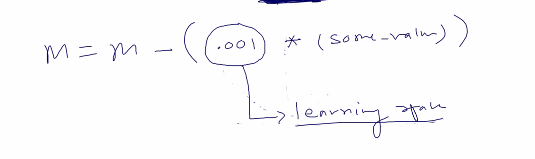 m = m - ( .001 * (some-value) )
learning